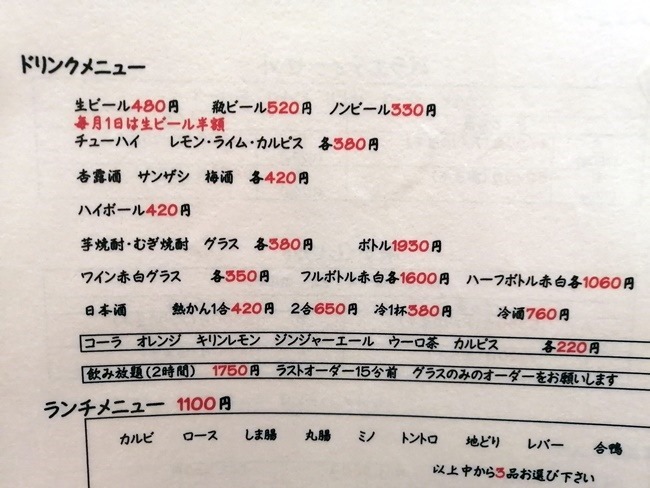 ドリンクメニュー
生ビール480円 瓶ビール520円 ノンビール330円
毎月1日は生ビール半額
チューハイ レモン・ライム・カルピス 各380円
杏露酒 サンザシ 梅酒 各420円
ハイボール420円
芋焼酎・むぎ焼酎 グラス 各380円 ボトル1930円
ワイン赤白グラス 各350円 フルボトル赤白各1600円 ハーフボトル赤白各1060円
日本酒 熱かん1合420円 2合650円 冷1杯380円 冷酒760円
コーラ オレンジ キリンレモン ジンジャーエール ウーロ茶 カルピス 各220円
飲み放題(2時間) 1750円 ラストオーダー15分前 グラスのみのオーダーをお願いします
ランチメニュー 1100円
カルビ ロース しま腸 丸腸 ミノ トントロ 地どり レバー 合鴨
以上中から3品お選び下さい